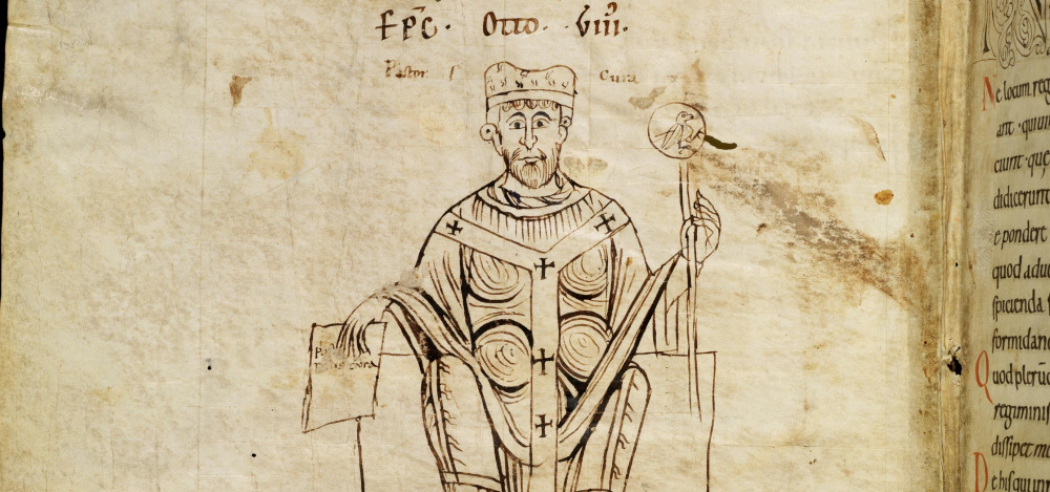 EPC. Otto. VIII.
Pastor
Cura
cura
e locum reg
ant quiuis
ciunt que
didicerunt
e ponderẽ
quod aduer
spicienda
formidand
Quod plerũ
regiminis
dissipet me
De his qui in